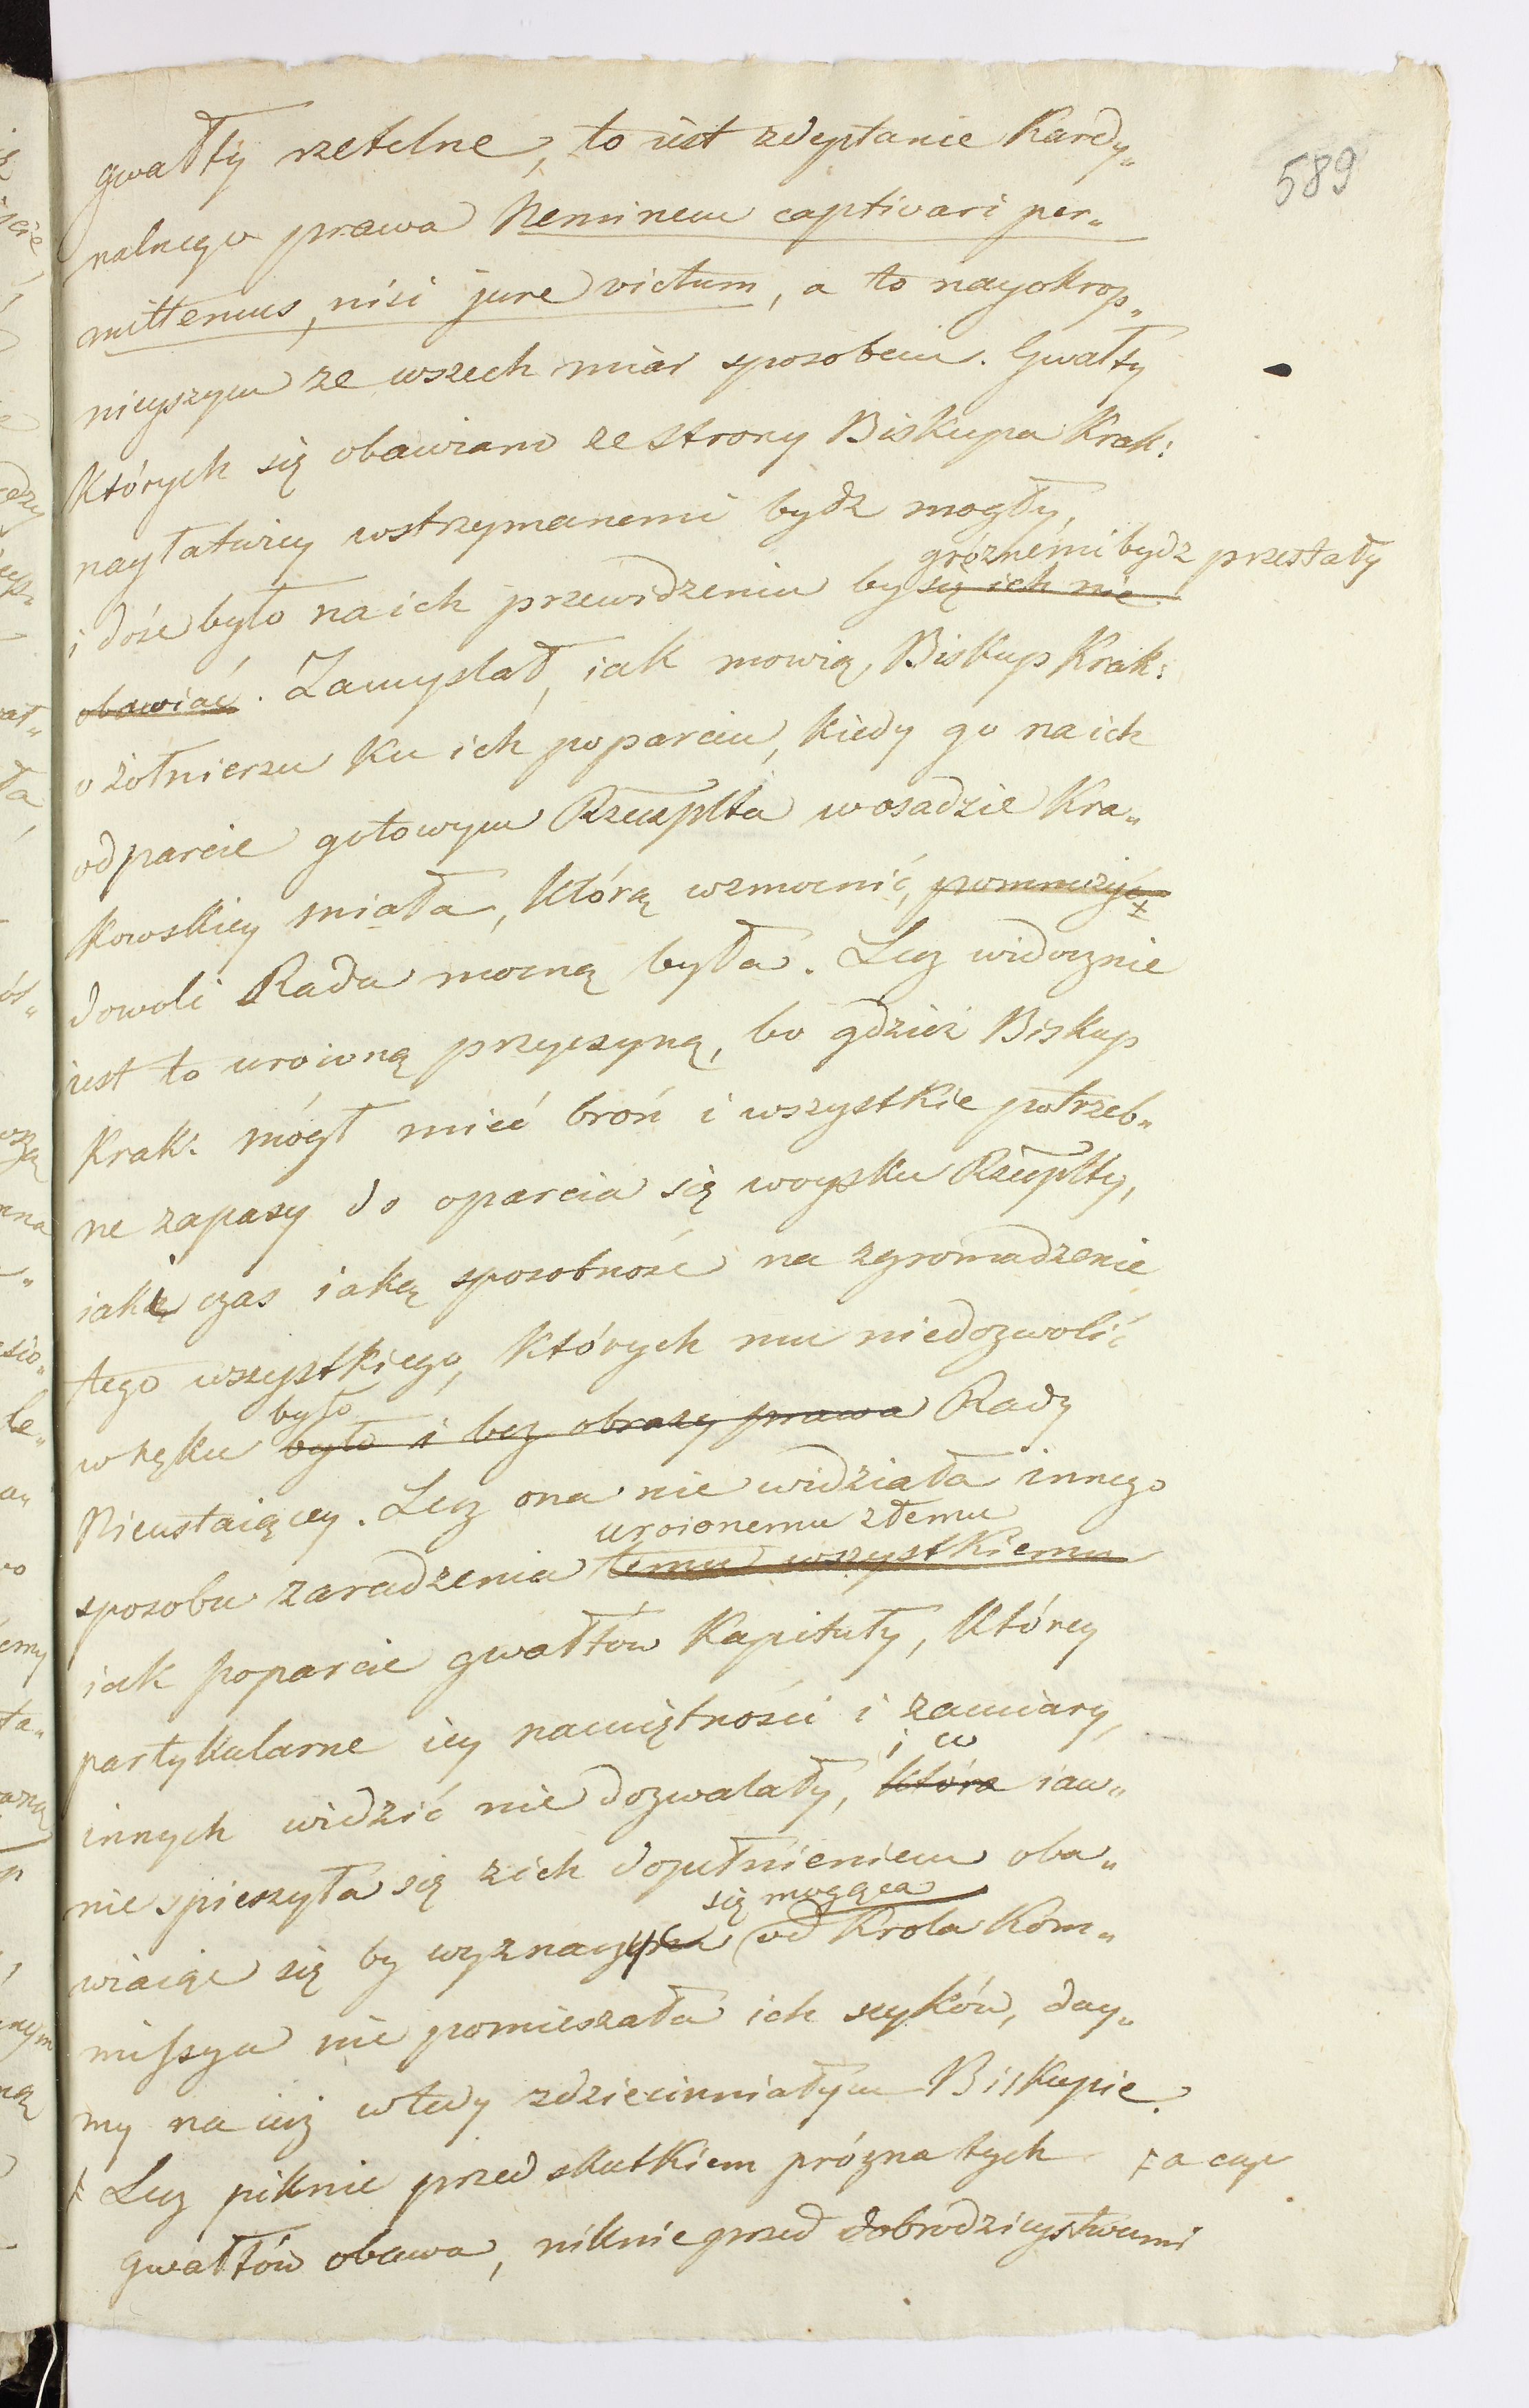 589
gwałty rzetelne, to iest zdeptanie Kardy„
nalnego prawa Neminem captivari per„
mittemus, nisi jure victum, a to nayokrop„
nieyszym ze wszech miar sposobem. Gwałty
których się obawiano ze strony Biskupa Krak:
nayłatwiey wstrzymanemi bydz mogły,
gróznemi bydz przestały
i dość było na ich przewidzeniu by się ich nie
obawiać. Zamyslał, iak mowią, Biskup Krak:
o żołnierzu ku ich poparciu, kiedy go na ich
odparcie gotowym Rzeczplta w osadzie Kra„
kowskiey miała, którą wzmocnić, pomnożyć
dowoli Rada mocną była. Lecz widocznie
iest to uroioną przyczyną, bo gdzież Biskup
Krak: mógł mieć broń i wszystkie potrzeb„
ne zapasy do oparcia się woysku Rzeczplty,
iaki czas iaką sposobność na zgromadzenie
tego wszystkiego, których mu niedozwolić
było
w ręku było i bez obrazy prawa Rady
Nieustaiącey. Lecz ona nie widziała innego
uroionemu złemu
sposobu zaradzenia temu wszystkiemu
iak poparcie gwałtów Kapituły, którey
partykularne iey namiętności i zamiary,
i w
innych widzić nie dozwalały, która iaw„
nie spieszyła się z ich dopełnieniem oba„
się mogąca
wiaiąc się by wyznaczyć od Krola Kom„
missya nie pomieszała ich szyków, day„
my na iuż wtedy zdziecinniałym Biskupie.
Lecz niknie przed skutkiem prózna tych ⨍ a cap
gwałtów obawa, niknie przed dobrodzieystwami